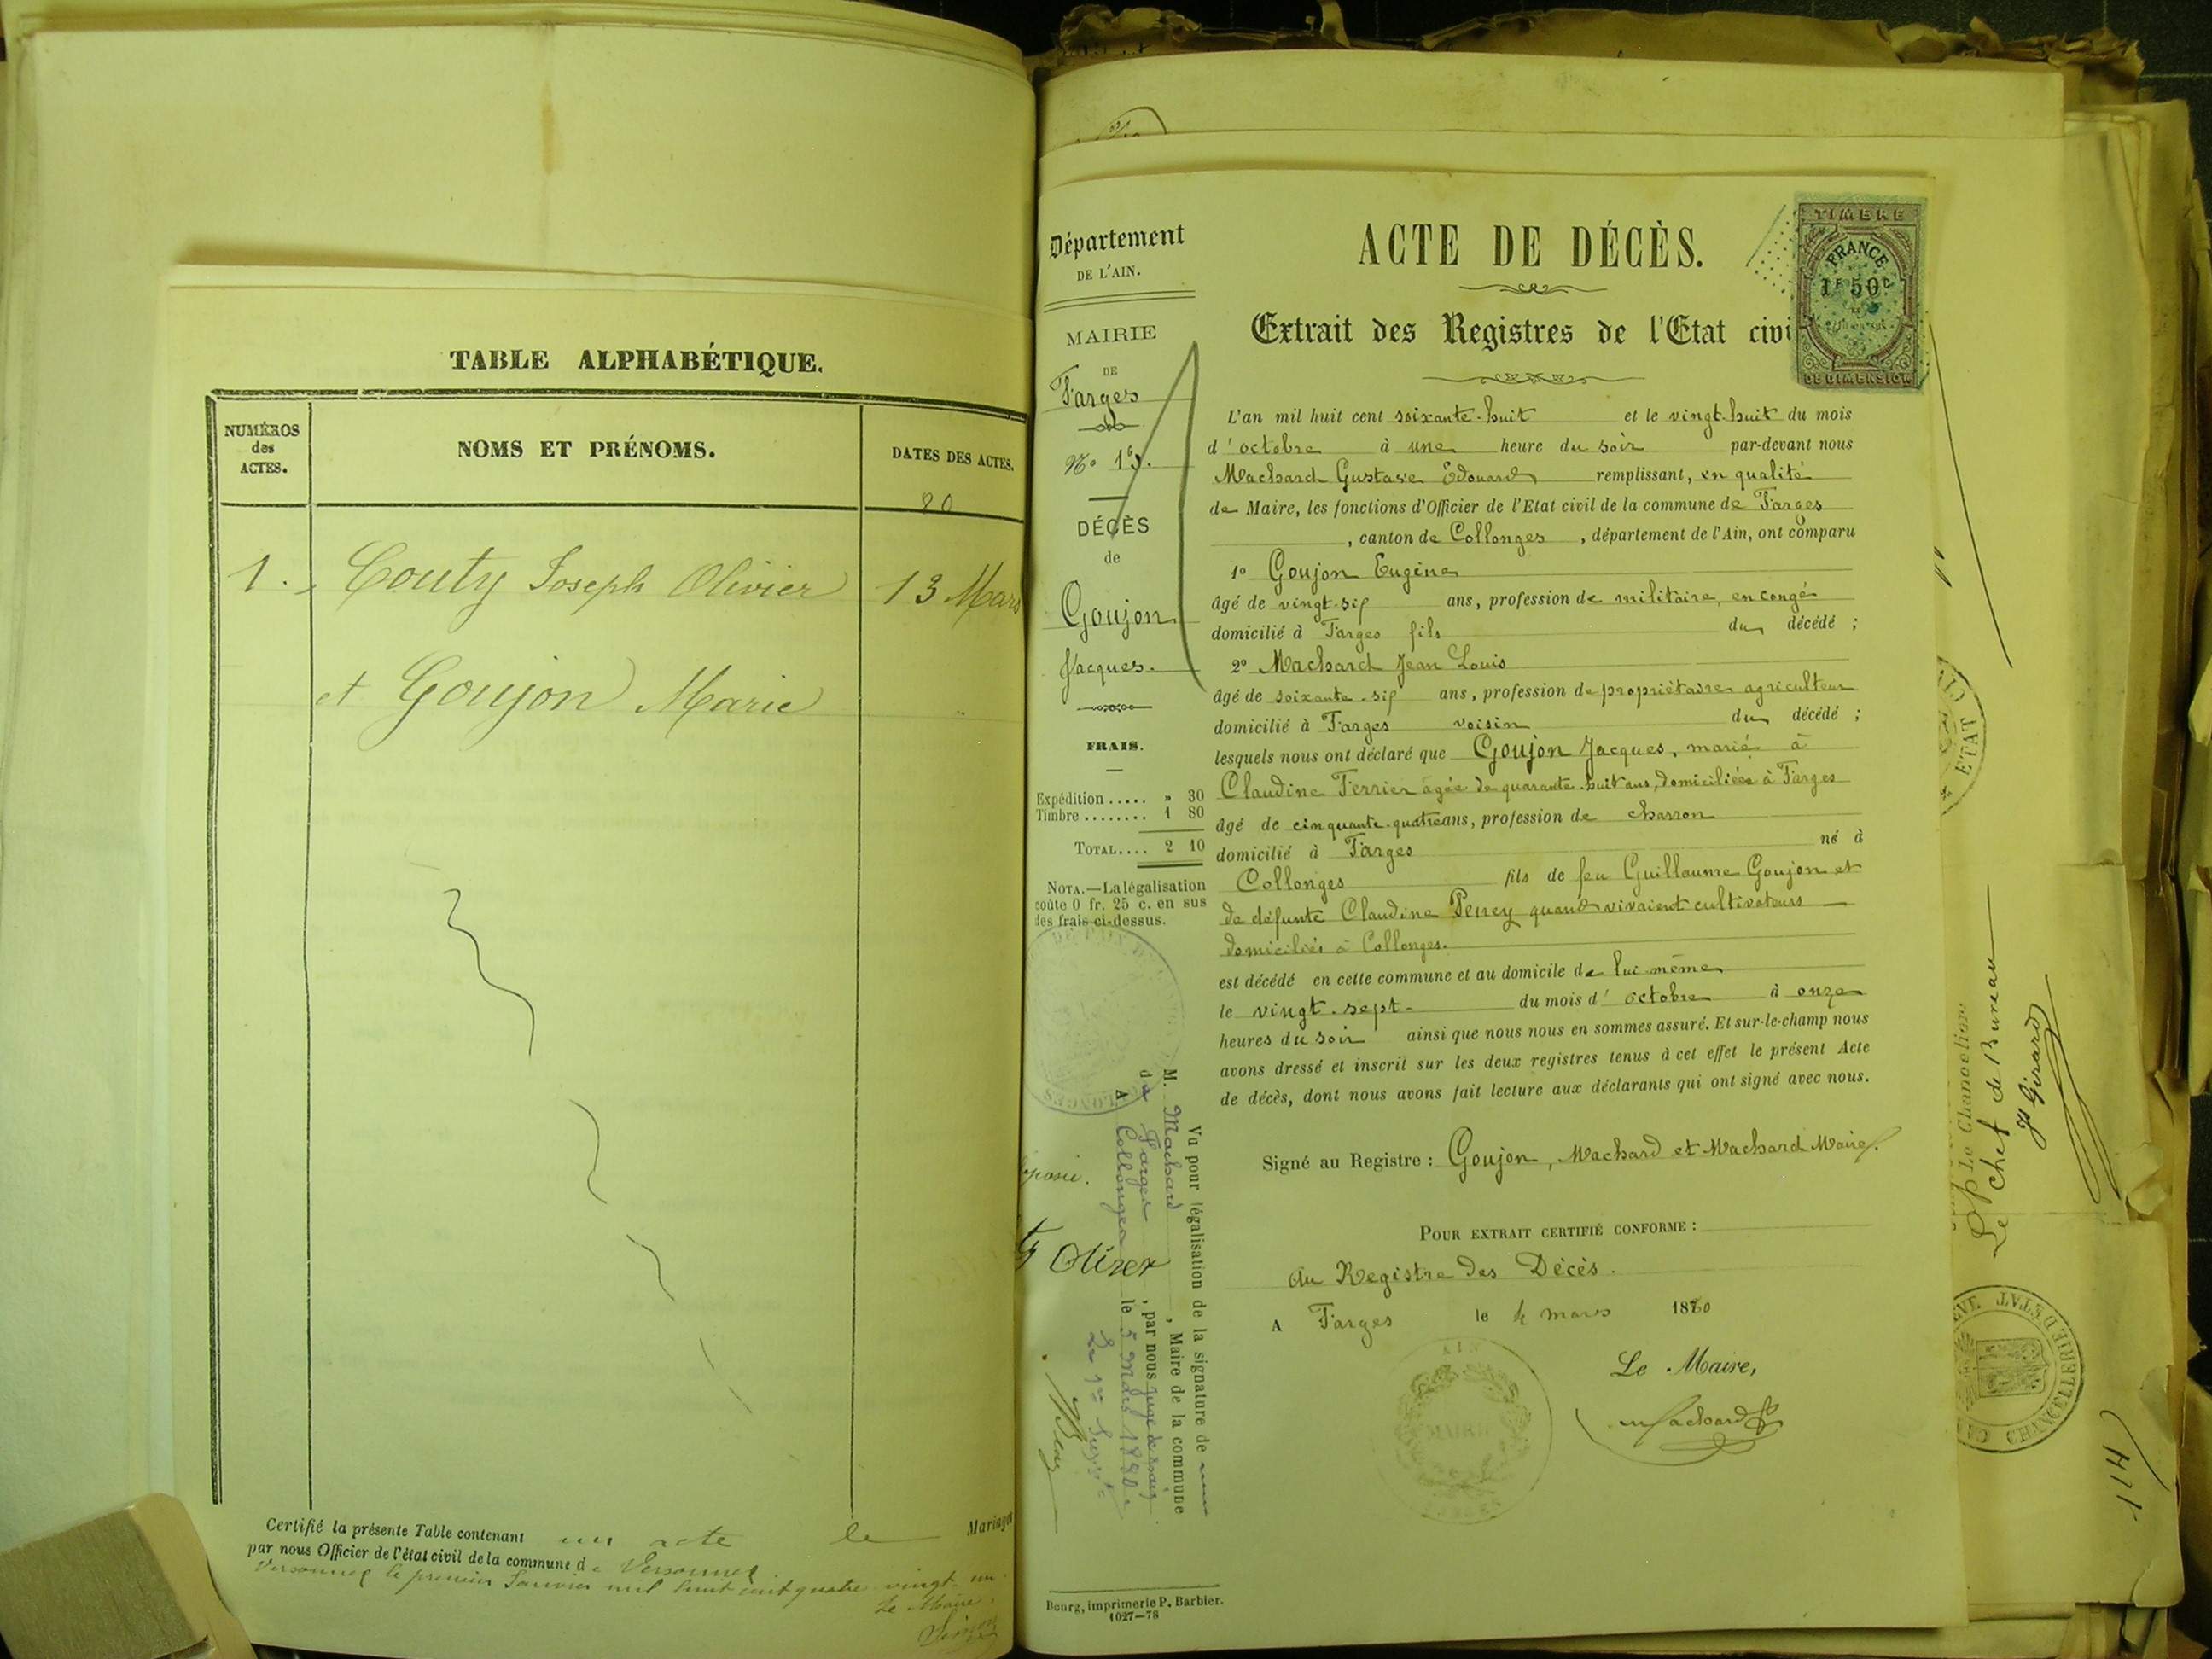 TABLE ALPHABÉTIQUE.
NUMÉROS
des
ACTES.
NOMS ET PRÉNOMS.
DATES DES ACTES.
80
1. Couty Joseph Olivier 13 Mars
et Goujon Marie
Certifié la présente Table contenant un acte le Mariages
par nous Officier de l'état civil de la commune de Versonnex
Versonnex le premier Janvier mil huit cent quatre vingt un
Le Maire,
Département
DE L'AIN.
MAIRIE
DE
Farges
No 16.
DÉCÈS
de
Goujon
Jacques.
FRAIS.
Expédition ..... » 30
Timbre ........ 1 80
TOTAL.... 2 10
NOTA.—La légalisation
coûte 0 fr. 25 c. en sus
des frais ci-dessus.
Vu pour légalisation de la signature de
M. Machard, Maire de la commune
de Farges, par nous juge de paix
A Collonges le 5 Mars 1880
Bourg, imprimerie P. Barbier.
1027—78
ACTE DE DÉCÈS.
Extrait des Registres de l'Etat civi
TIMBRE
FRANCE
1F 50C
DE DIMENSION
L'an mil huit cent soixante-huit et le vingt-huit du mois
d'octobre à une heure du soir par-devant nous
Machard Gustave Edouard remplissant, en qualité
de Maire, les fonctions d'Officier de l'Etat civil de la commune de Farges
, canton de Collonges, département de l'Ain, ont comparu
1o Goujon Eugène
âgé de vingt-six ans, profession de militaire, en congé
domicilié à Farges fils du décédé ;
2o Machard Jean Louis
âgé de soixante-six ans, profession de propriétaire agriculteur
domicilié à Farges voisin du décédé ;
lesquels nous ont déclaré que Goujon Jacques, marié à
Claudine Ferrier âgée de quarante-huit ans, domiciliée à Farges
âgé de cinquante-quatre ans, profession de charron
domicilié à Farges né à
Collonges fils de feu Guillaume Goujon et
de défunte Claudine Perrey quand vivaient cultivateurs
domiciliés à Collonges.
est décédé en cette commune et au domicile de lui-même
le vingt-sept du mois d'octobre à onze
heures du soir ainsi que nous nous en sommes assuré. Et sur-le-champ nous
avons dressé et inscrit sur les deux registres tenus à cet effet le présent Acte
de décès, dont nous avons fait lecture aux déclarants qui ont signé avec nous.
Signé au Registre : Goujon, Machard et Machard Maire.
POUR EXTRAIT CERTIFIÉ CONFORME :
Au Registre des Décès.
A Farges le 4 mars 1880
Le Maire,
Machard
AIN
MAIRIE
Le Chancelier
Le Chef de Bureau
Js Girard
ETAT
CHANCELLERIE D'ETAT